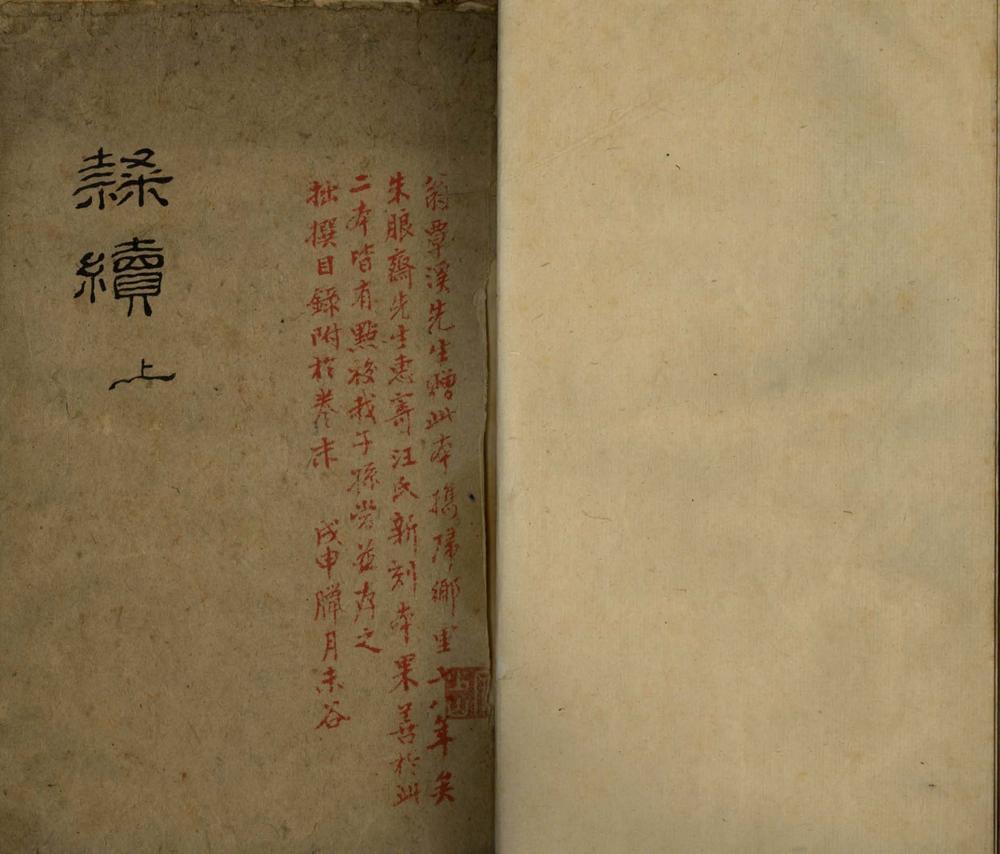 隸續 上
翁覃溪先生贈此本攜歸鄉里七八年矣
朱朗齋先生惠寄汪氏新刻本果善於此
二本皆有點校我子孫當並存之
拙撰目錄附於卷末 戊申臘月未谷